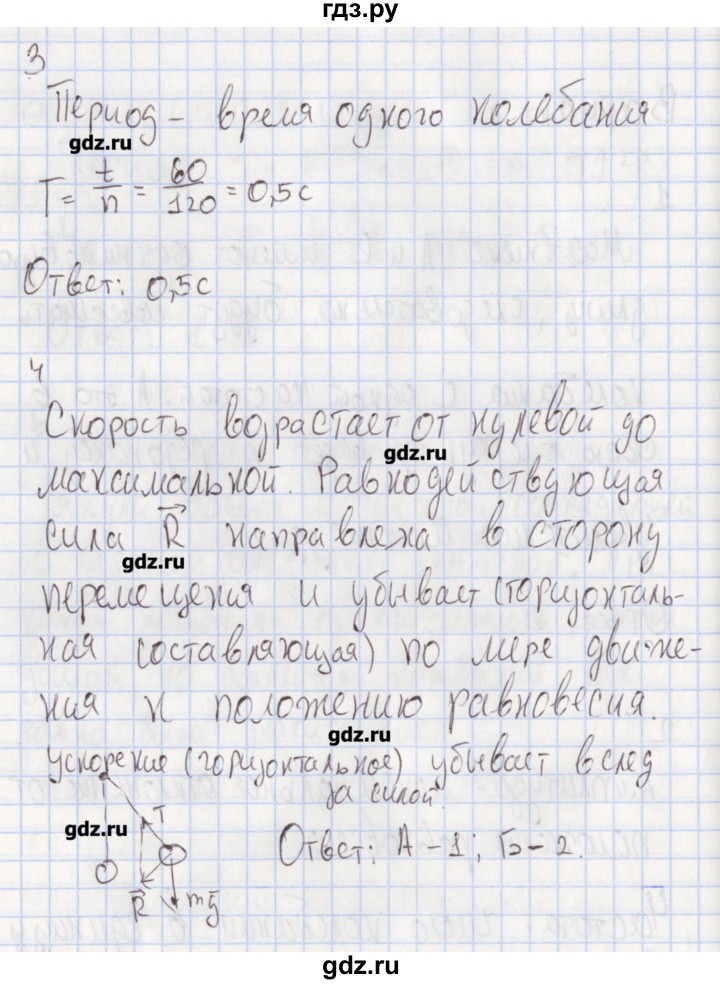 гдз.ру
3
Период - время одного колебания
gdz.ru
T = t/n = 60/120 = 0,5 с
Ответ: 0,5 с
4
Скорость возрастает от нулевой до
gdz.ru
максимальной. Равнодействующая
сила R⃗ направлена в сторону
gdz.ru
перемещения и убывает (горизонталь-
ная составляющая) по мере движе-
ния к положению равновесия.
gdz.ru
Ускорение (горизонтальное) убывает вслед
за силой.
gdz.ru
T
Ответ: А - 1; Б - 2.
R⃗
mg⃗
gdz.ru
gdz.ru